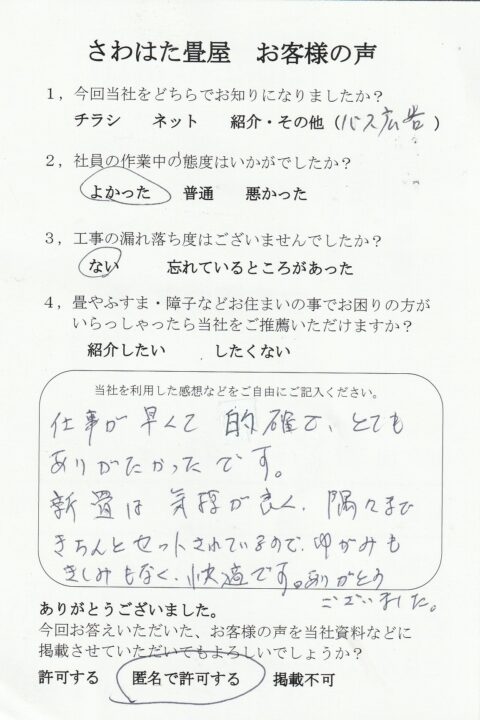 さわはた畳屋　お客様の声
1，今回当社をどちらでお知りになりましたか？
チラシ　ネット　紹介・その他（バス広告）
2，社員の作業中の態度はいかがでしたか？
よかった　普通　悪かった
3，工事の漏れ落ち度はございませんでしたか？
ない　忘れているところがあった
4，畳やふすま・障子などお住まいの事でお困りの方が
いらっしゃったら当社をご推薦いただけますか？
紹介したい　したくない
当社を利用した感想などをご自由にご記入ください。
仕事が早くて 的確で、とても
ありがたかったです。
新畳は気持が良く、隅々まで
きちんとセットされているので、ゆがみも
きしみもなく、快適です。ありがとう
ございました。
ありがとうございました。
今回お答えいただいた、お客様の声を当社資料などに
掲載させていただいてもよろしいでしょうか？
許可する　匿名で許可する　掲載不可